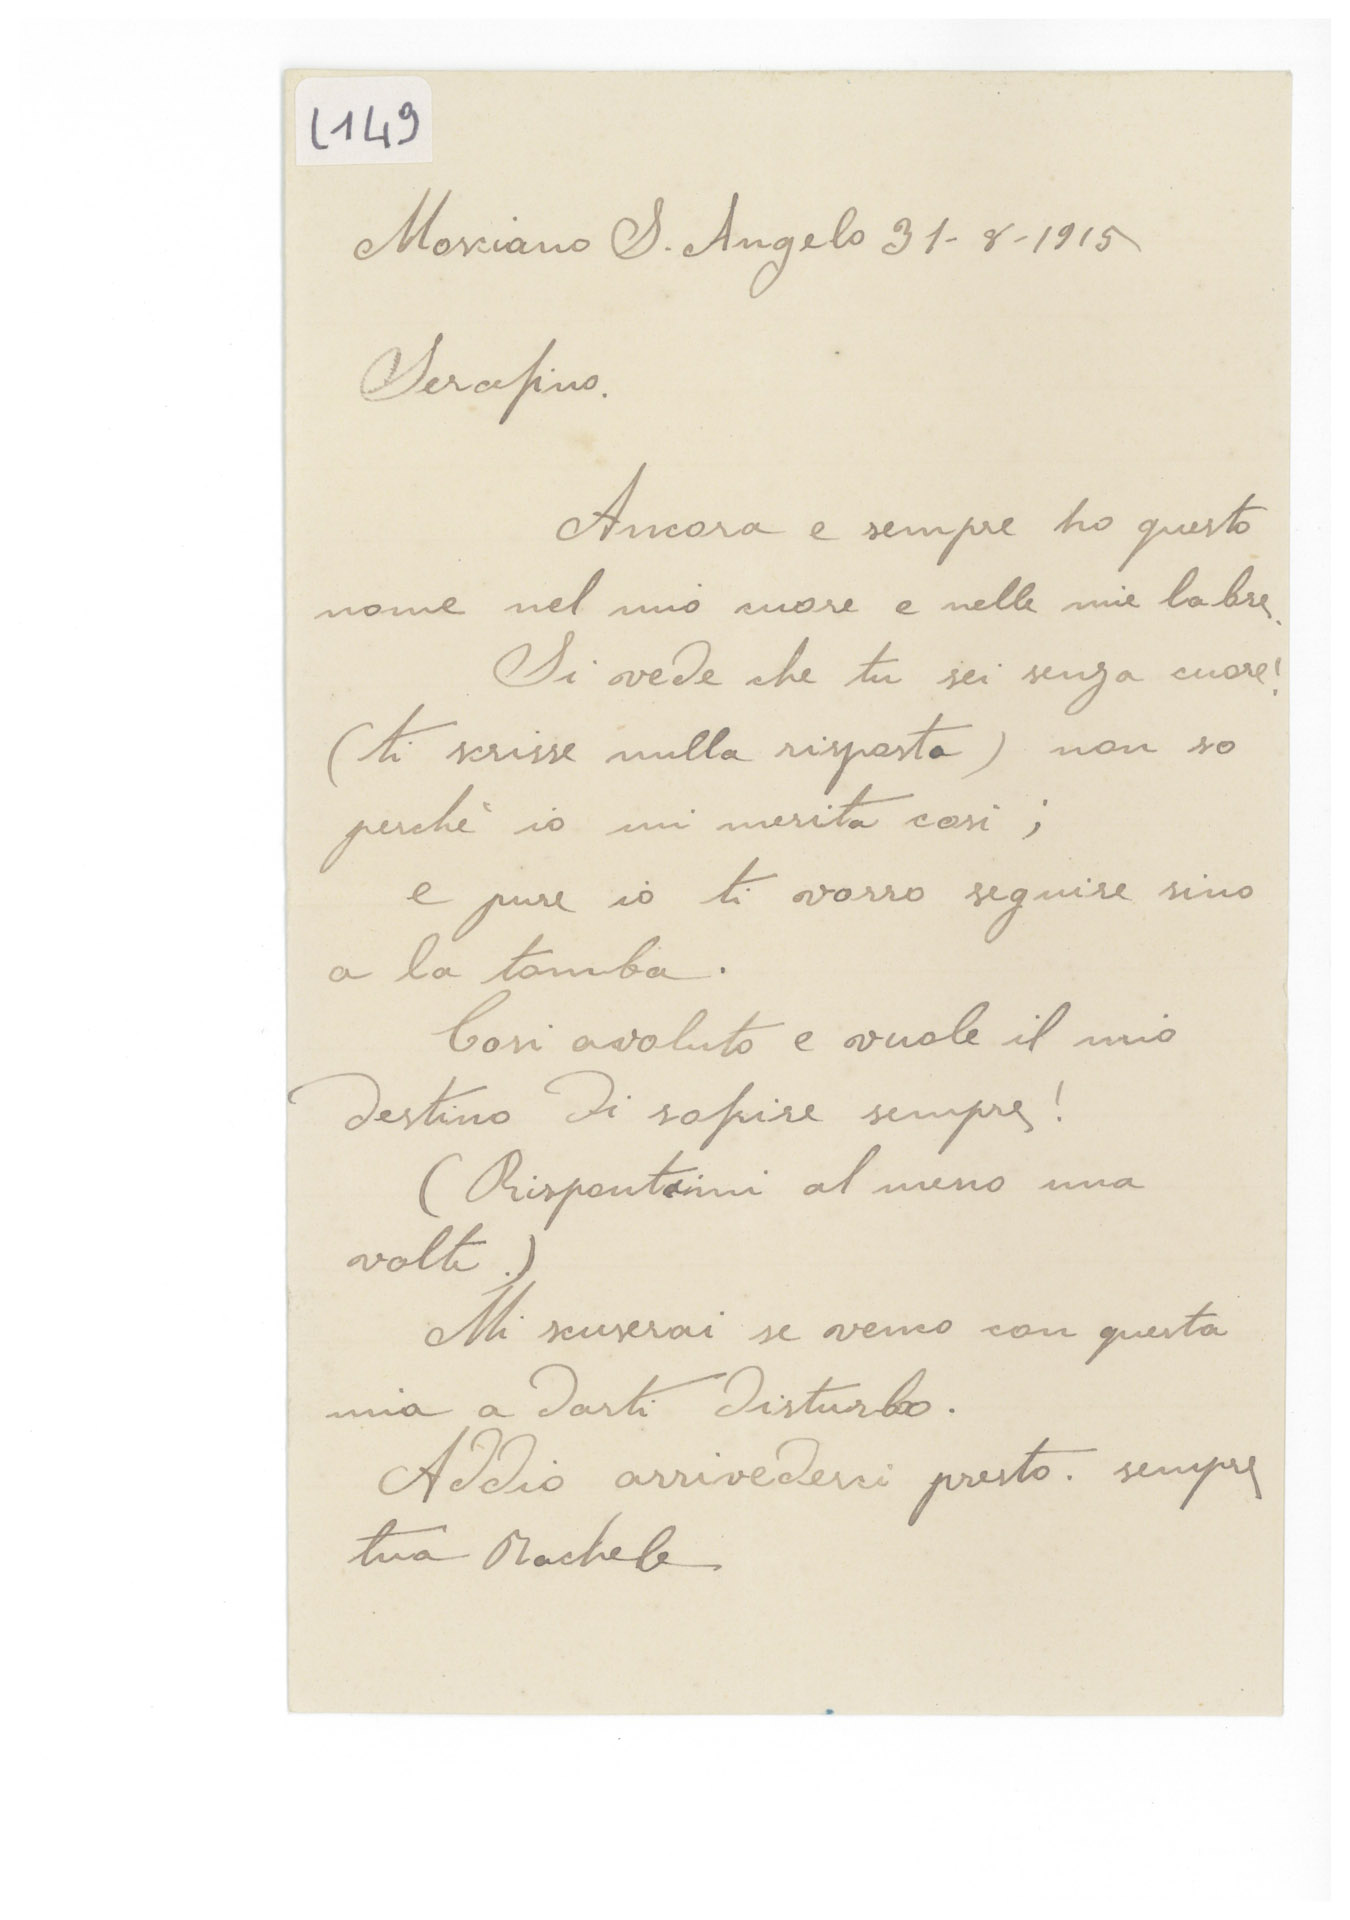 L149
Mosciano S. Angelo 31-8-1915
Serafino.
Ancora e sempre ho questo
nome nel mio cuore e nelle mie labre.
Si vede che tu sei senza cuore!
(ti scrisse nulla risposta) non so
perchè io mi merita cosi;
e pure io ti vorro seguire sino
a la tomba.
Cosi avoluto e vuole il mio
destino di sofrire sempre!
(Rispontimi al meno una
volta.)
Mi scuserai se venco con questa
mia a darti disturbo.
Addio arrivederci presto. sempre
tua Rachele